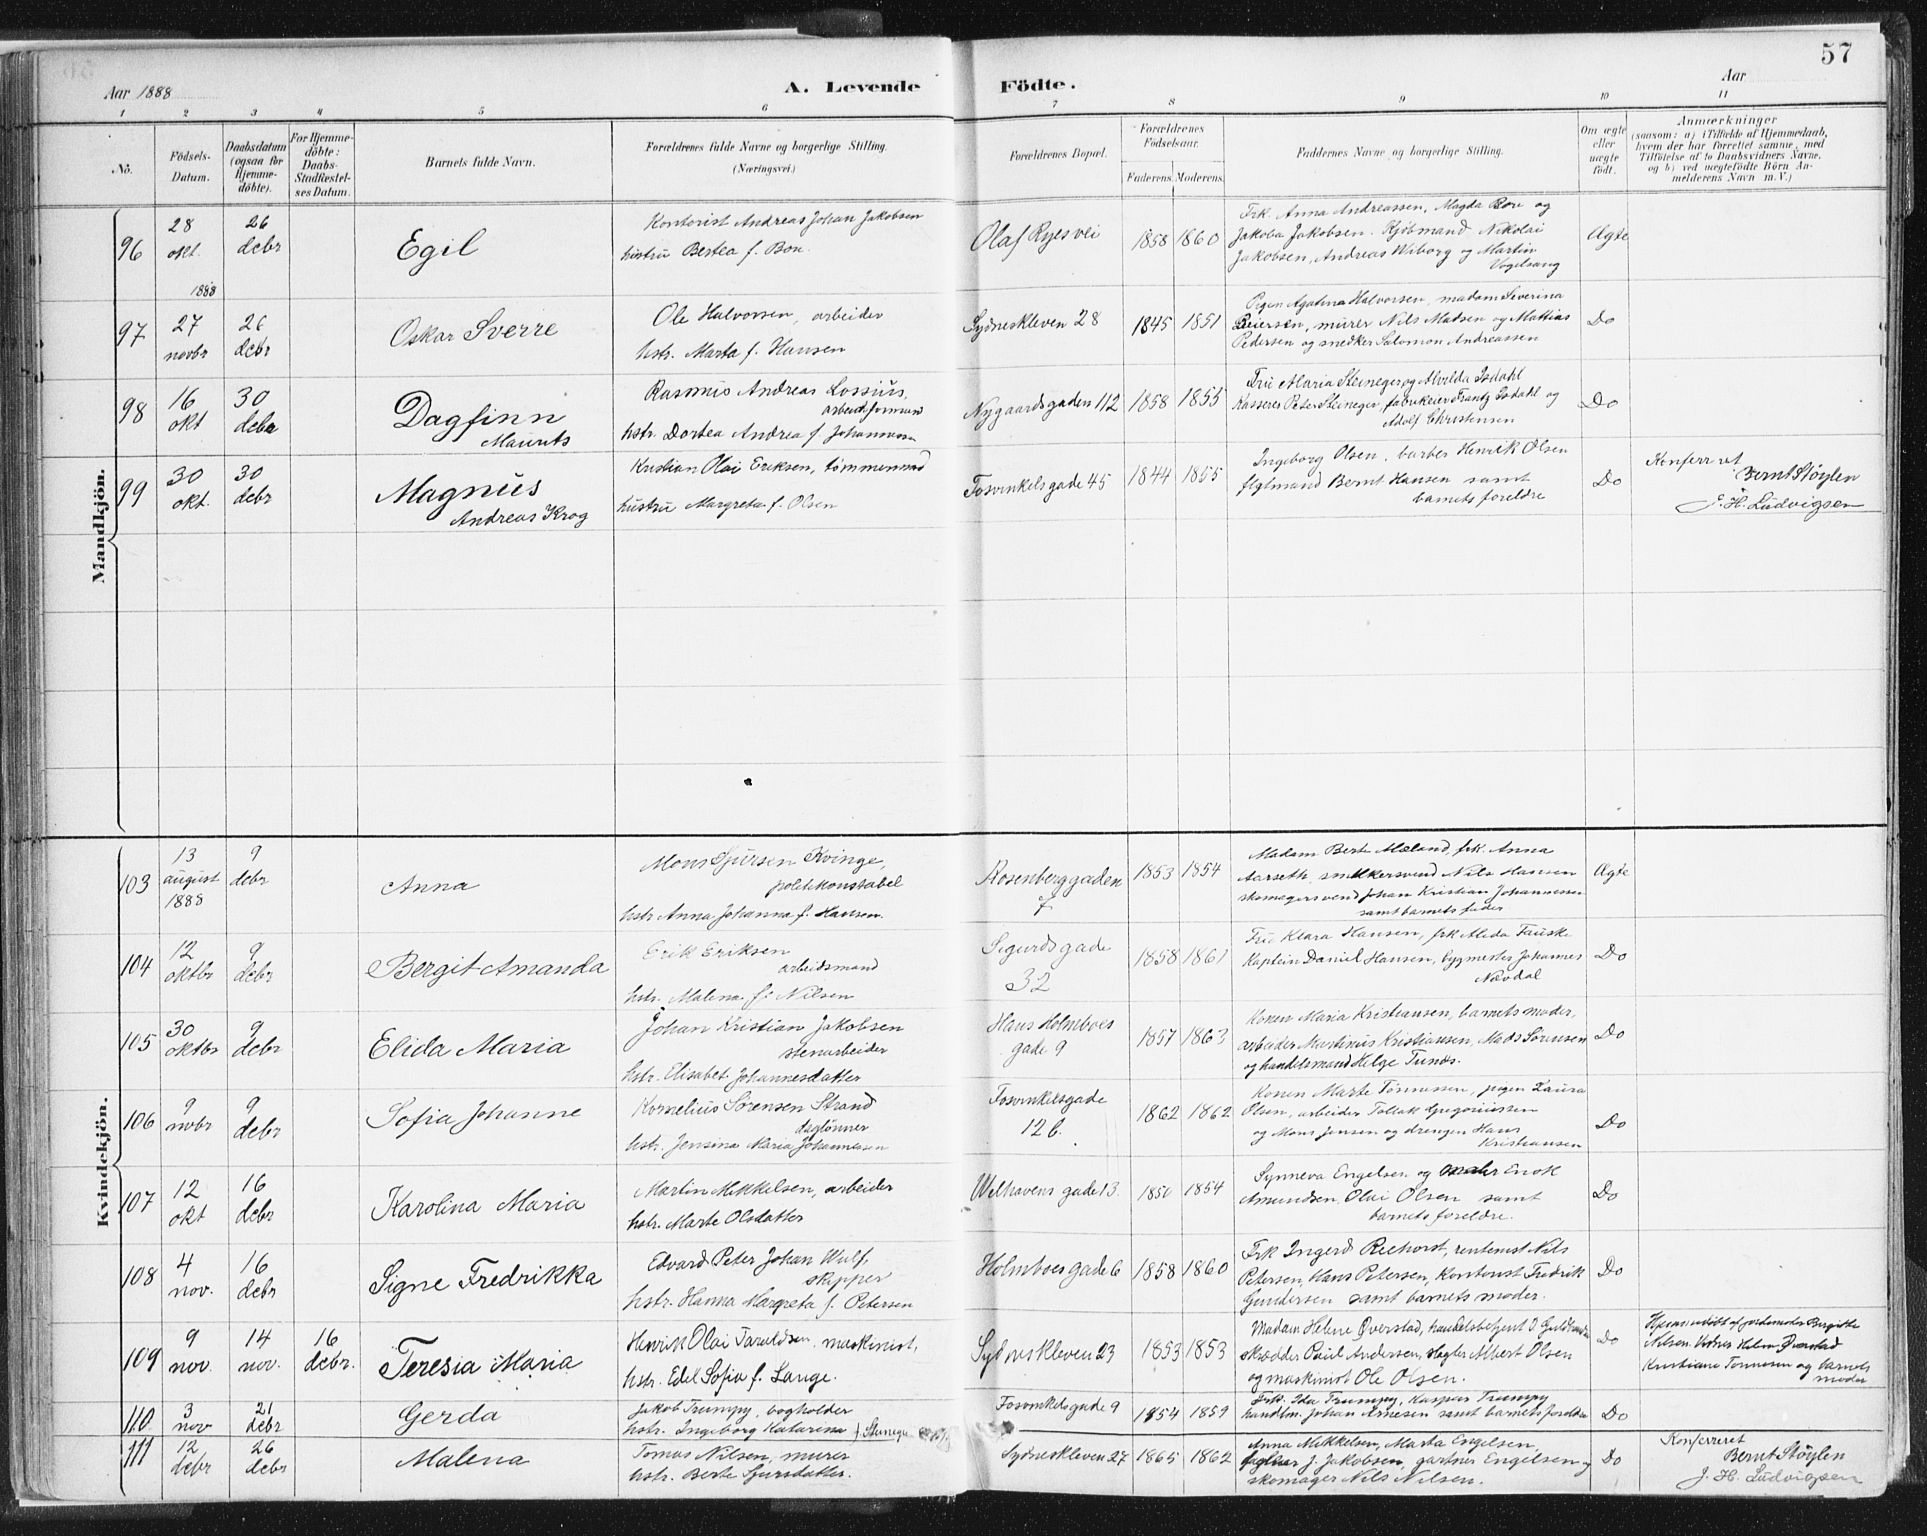 57
Aar 1888
A. Levende Födte.
Aar
1 2 3 4 5 6 7 8 9 10 11
No.
Födsels-Datum.
Daabsdatum (ogsaa for Hjemme-döbte).
For Hjemme-döbte: Daabs-Stadfæstel-ses Datum.
Barnets fulde Navn.
Forældrenes fulde Navne og borgerlige Stilling. (Næringsvei.)
Forældrenes Bopæl.
Forældrenes Födselsaar.
Faderens. Moderens.
Faddernes Navne og borgerlige Stilling.
Om ægte eller uægte födt.
Anmærkninger
(saasom: a) i Tilfælde af Hjemmedaab,
hvem der har forrettet samme, med
Tilföielse af to Daabsvidners Navne,
og b) ved uægtefödte Börn An-
melderens Navn m. V.)
Mandkjön.
96 28 okt. 1888 26 debr Egil
Kontorist Andreas Johan Jakobsen
hustru Bertea f. Bøe.
Olaf Ryes vei 1858 1860
Frk. Anna Andreassen, Magda Bøe og
Jakoba Jakobsen. Kjöbmand Nikolai
Jakobsen, Andreas Wiborg og Martin
Vogelsang
Ægte
97 27 novbr 26 debr Oskar Sverre
Ole Halvorsen, arbeider
hstr. Marta f. Hansen
Sydneskleven 28 1845 1851
Pigen Agatina Halvorsen, madam Severina
Peiersen, murer Nils Madsen og Mattias
Pedersen og snedker Salomon Andreassen
Do
98 16 okt 30 debr Dagfinn
Maurits
Rasmus Andreas Lossius,
arbeidsformand
hstr. Dortea Andrea f. Johannessen
Nygaardsgaden 112 1858 1855
Fru Maria Steineger og Alvilda Isdahl
Kasserer Peter Steineger, fabrikeier Frantz Isdahl og
Adolf Christensen
Do
99 30 okt. 30 debr Magnus
Andreas Krog
Kristian Olai Eriksen, tømmermand
hustru Margreta f. Olsen
Fosvinkelsgade 45 1844 1855
Ingeborg Olsen, barber Henrik Olsen
Bernt Hansen samt
barnets foreldre
Do
Konferret
Bernt Støylen
J. H. Ludvigsen
Kvindekjön.
103 13 august 1888 9 debr Anna
Mons Sjursen Kvinge,
politikonstabel
hstr. Anna Johanna f. Hansen.
Rosenberggaden
7
1853 1854
Madam Berit Mæland, frk. Anna
Aarseth, snekkersvend Nils Hansen
skomagersvend Johan Kristian Johannessen
samt barnets fader
Ægte
104 12 oktbr 9 debr Bergit Amanda
Erik Eriksen
arbeidsmand
hstr. Malena f. Nilsen
Sigurdsgade
32
1858 1861
Fru Klara Hansen, frk Aleda Fauske
Kaptein Daniel Hansen, bygmester Johannes
Nævdal
Do
105 30 oktbr 9 debr Elida Maria
Johan Kristian Jakobsen
stenarbeider
hstr. Elisabet Johannesdatter
Hans Holmboes
gade 9
1857 1863
Konen Maria Kristiansen, barnets moder,
arbeider Martinius Kristiansen, Mads Sørensen
og handelsmand Helge Tunæs.
Do
106 9 novbr 9 debr Sofia Johanne
Kornelius Sørensen Strand
daglønner
hstr. Jensina Maria Johannesen
Fosvinkelsgade
12 b.
1862 1862
Konen Marte Tønnessen, pigen Laura
Olsen, arbeider Tollak Gregoriussen
og Mons Jensen og drengen Hans
Kristiansen
Do
107 12 okt 16 debr Karolina Maria
Martin Mikkelsen, arbeider
hstr. Marte Olsdatter
Welhavens gade 13. 1850 1854
Synneva Engelsen og maler Enok
Amundsen, Olai Olsen samt
barnets foreldre.
Do
108 4 nov. 16 debr Signe Fredrikka
Edvard Peter Johan Wulf,
skipper
hstr. Hanna Margreta f. Petersen
Holmboes gade 6 1858 1860
Frk Ingerd Reehorst, rentenist Nils
Petersen, Hans Petersen, Kontorist Fredrik
Gundersen samt barnets moder.
Do
109 9 nov. 14 nov. 16 debr. Teresia Maria
Henrik Olai Taraldsen, maskinist,
hstr. Edel Sofia f. Lange.
Sydneskleven 23 1853 1853
Madam Helene Øverstad, handelsbetjent
skrædder Paul Andersen, slagter Albert Olsen
og maskinist Ole Olsen.
Do
Hjemmedöbt af jordemoder Bergitte
Nilsen. Vidner Helene Øverstad
Kristiane Tønnesen og barnets
moder
110 3 nov 21 debr Gerda
Jakob Trumpy, bogholder
hstr. Ingeborg Katarina f. Steinegar
Fosvinkelsgade 9 1854 1859
Frk. Ida Trumpy, Kaspar Trumpy
handlm. Johan Arnesen samt barnets foreldre
Do
111 12 debr 26 debr Malena
Tomas Nilsen, murer
hstr. Berte Sjursdatter.
Sydneskleven 27 1865 1862
Anna Mikkelsen, Marta Engelsen,
J. Jakobsen, gartner Engelsen og
skomager Nils Nilsen.
Do
Konferreret
Bernt Støylen
J. H. Ludvigsen